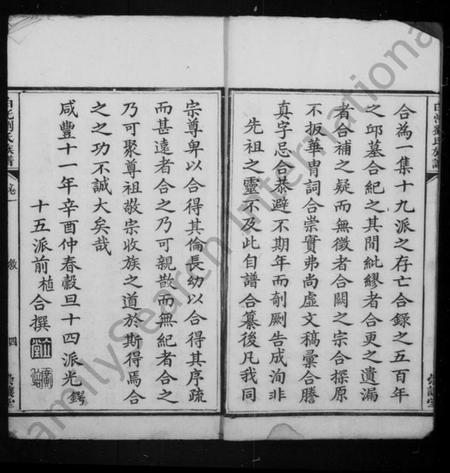 合為一集十九派之存亡合錄之五百年
之邱墓合紀之其間紕繆者合更之遺漏
者合補之疑而無徵者合闕之宗合探原
不扳華冑詞合崇實弗尚虛文稿彙合謄
真字忌合恭避不期年而剞劂告成洵非
先祖之靈不及此自譜合纂後凡我同
宗尊卑以合得其倫長幼以合得其序疏
而甚遠者合之乃可親散而無紀者合之
乃可聚尊祖敬宗收族之道於斯得焉合
之之功不誠大矣哉
咸豐十一年辛酉仲春穀旦十四派光鍔
十五派前植合撰
卷一
敘
四
FamilySearch International